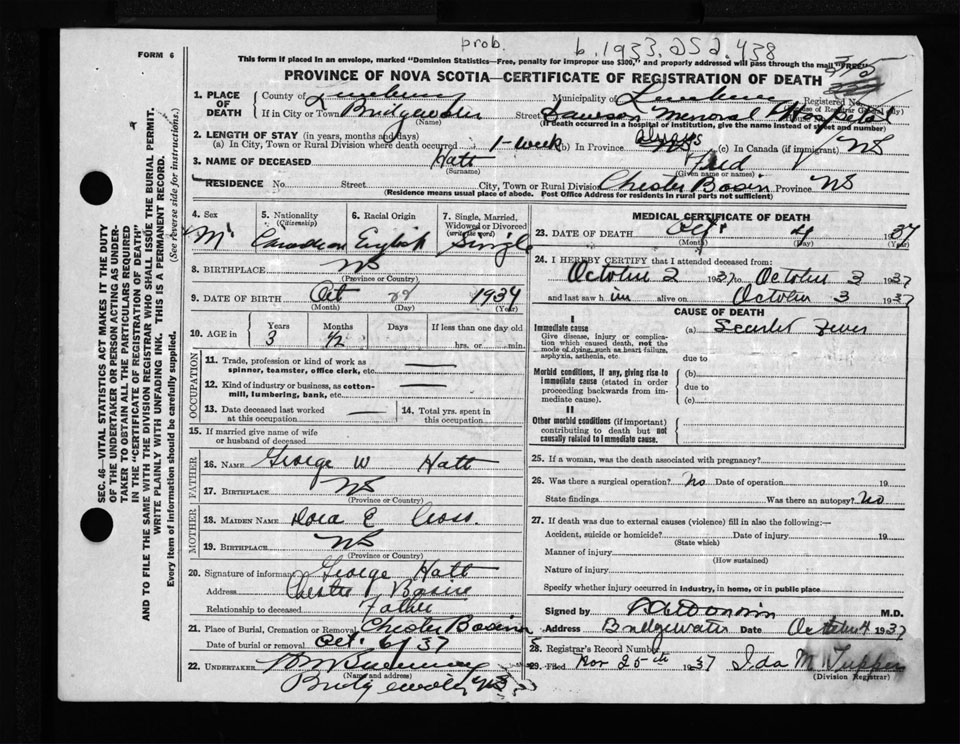 prob. b. 1933. 252. 438
FORM 6
This form if placed in an envelope, marked "Dominion Statistics—Free, penalty for improper use $300," and properly addressed will pass through the mail "FREE"
PROVINCE OF NOVA SCOTIA—CERTIFICATE OF REGISTRATION OF DEATH
1. PLACE OF DEATH
County of Lunenburg Municipality of Lunenburg Registered No.
If in City or Town Bridgewater Street Dawson Memorial Hospital
(Name) (If death occurred in a hospital or institution, give the name instead of street and number)
2. LENGTH OF STAY (in years, months and days)
(a) In City, Town or Rural Division where death occurred 1-week (b) In Province always NS (c) In Canada (if immigrant) NS
3. NAME OF DECEASED Hatt Fred
(Surname) (Given name or names)
RESIDENCE No. Street City, Town or Rural Division Chester Basin Province NS
(Residence means usual place of abode. Post Office Address for residents in rural parts not sufficient)
4. Sex M
5. Nationality (Citizenship) Canadian
6. Racial Origin English
7. Single, Married, Widowed or Divorced (write the word) Single
8. BIRTHPLACE NS
(Province or Country)
9. DATE OF BIRTH Oct 1934
(Month) (Day) (Year)
10. AGE in Years Months Days If less than one day old
3 hrs. or min.
OCCUPATION
11. Trade, profession or kind of work as spinner, teamster, office clerk, etc. —
12. Kind of industry or business, as cotton-mill, lumbering, bank, etc. —
13. Date deceased last worked at this occupation —
14. Total yrs. spent in this occupation
15. If married give name of wife or husband of deceased
FATHER
16. NAME George W Hatt
17. BIRTHPLACE NS
(Province or Country)
MOTHER
18. MAIDEN NAME Dora E Cross.
19. BIRTHPLACE NS
(Province or Country)
20. Signature of informant George Hatt
Address Chester Basin
Relationship to deceased Father
21. Place of Burial, Cremation or Removal Chester Basin
Date of burial or removal Oct. 6/37
22. UNDERTAKER
(Name and address)
Bridgewater NS
MEDICAL CERTIFICATE OF DEATH
23. DATE OF DEATH Oct 4 1937
(Month) (Day) (Year)
24. I HEREBY CERTIFY that I attended deceased from:
October 2 1937 to October 3 1937
and last saw h im alive on October 3 1937
CAUSE OF DEATH
I
Immediate cause (a) Scarlet Fever
Give disease, injury or complication which caused death, not the mode of dying, such as heart failure, asphyxia, asthenia, etc.
due to
Morbid conditions, if any, giving rise to immediate cause (stated in order proceeding backwards from immediate cause).
(b)
due to
(c)
II
Other morbid conditions (if important) contributing to death but not causally related to immediate cause.
25. If a woman, was the death associated with pregnancy?
26. Was there a surgical operation? No Date of operation 19
State findings Was there an autopsy? No
27. If death was due to external causes (violence) fill in also the following:—
Accident, suicide or homicide? Date of injury 19
(State which)
Manner of injury
(How sustained)
Nature of injury
Specify whether injury occurred in industry, in home, or in public place
Signed by M.D.
Address Bridgewater Date October 4 1937
28. Registrar's Record Number
29. Filed Nov 25th 1937 Ida M. Tupper
(Division Registrar)
SEC. 46—VITAL STATISTICS ACT MAKES IT THE DUTY
OF THE UNDERTAKER OR PERSON ACTING AS UNDER-
TAKER TO OBTAIN ALL THE PARTICULARS REQUIRED
IN THE "CERTIFICATE OF REGISTRATION OF DEATH"
AND TO FILE THE SAME WITH THE DIVISION REGISTRAR WHO SHALL ISSUE THE BURIAL PERMIT.
WRITE PLAINLY WITH UNFADING INK. THIS IS A PERMANENT RECORD.
Every item of information should be carefully supplied. (See reverse side for instructions.)